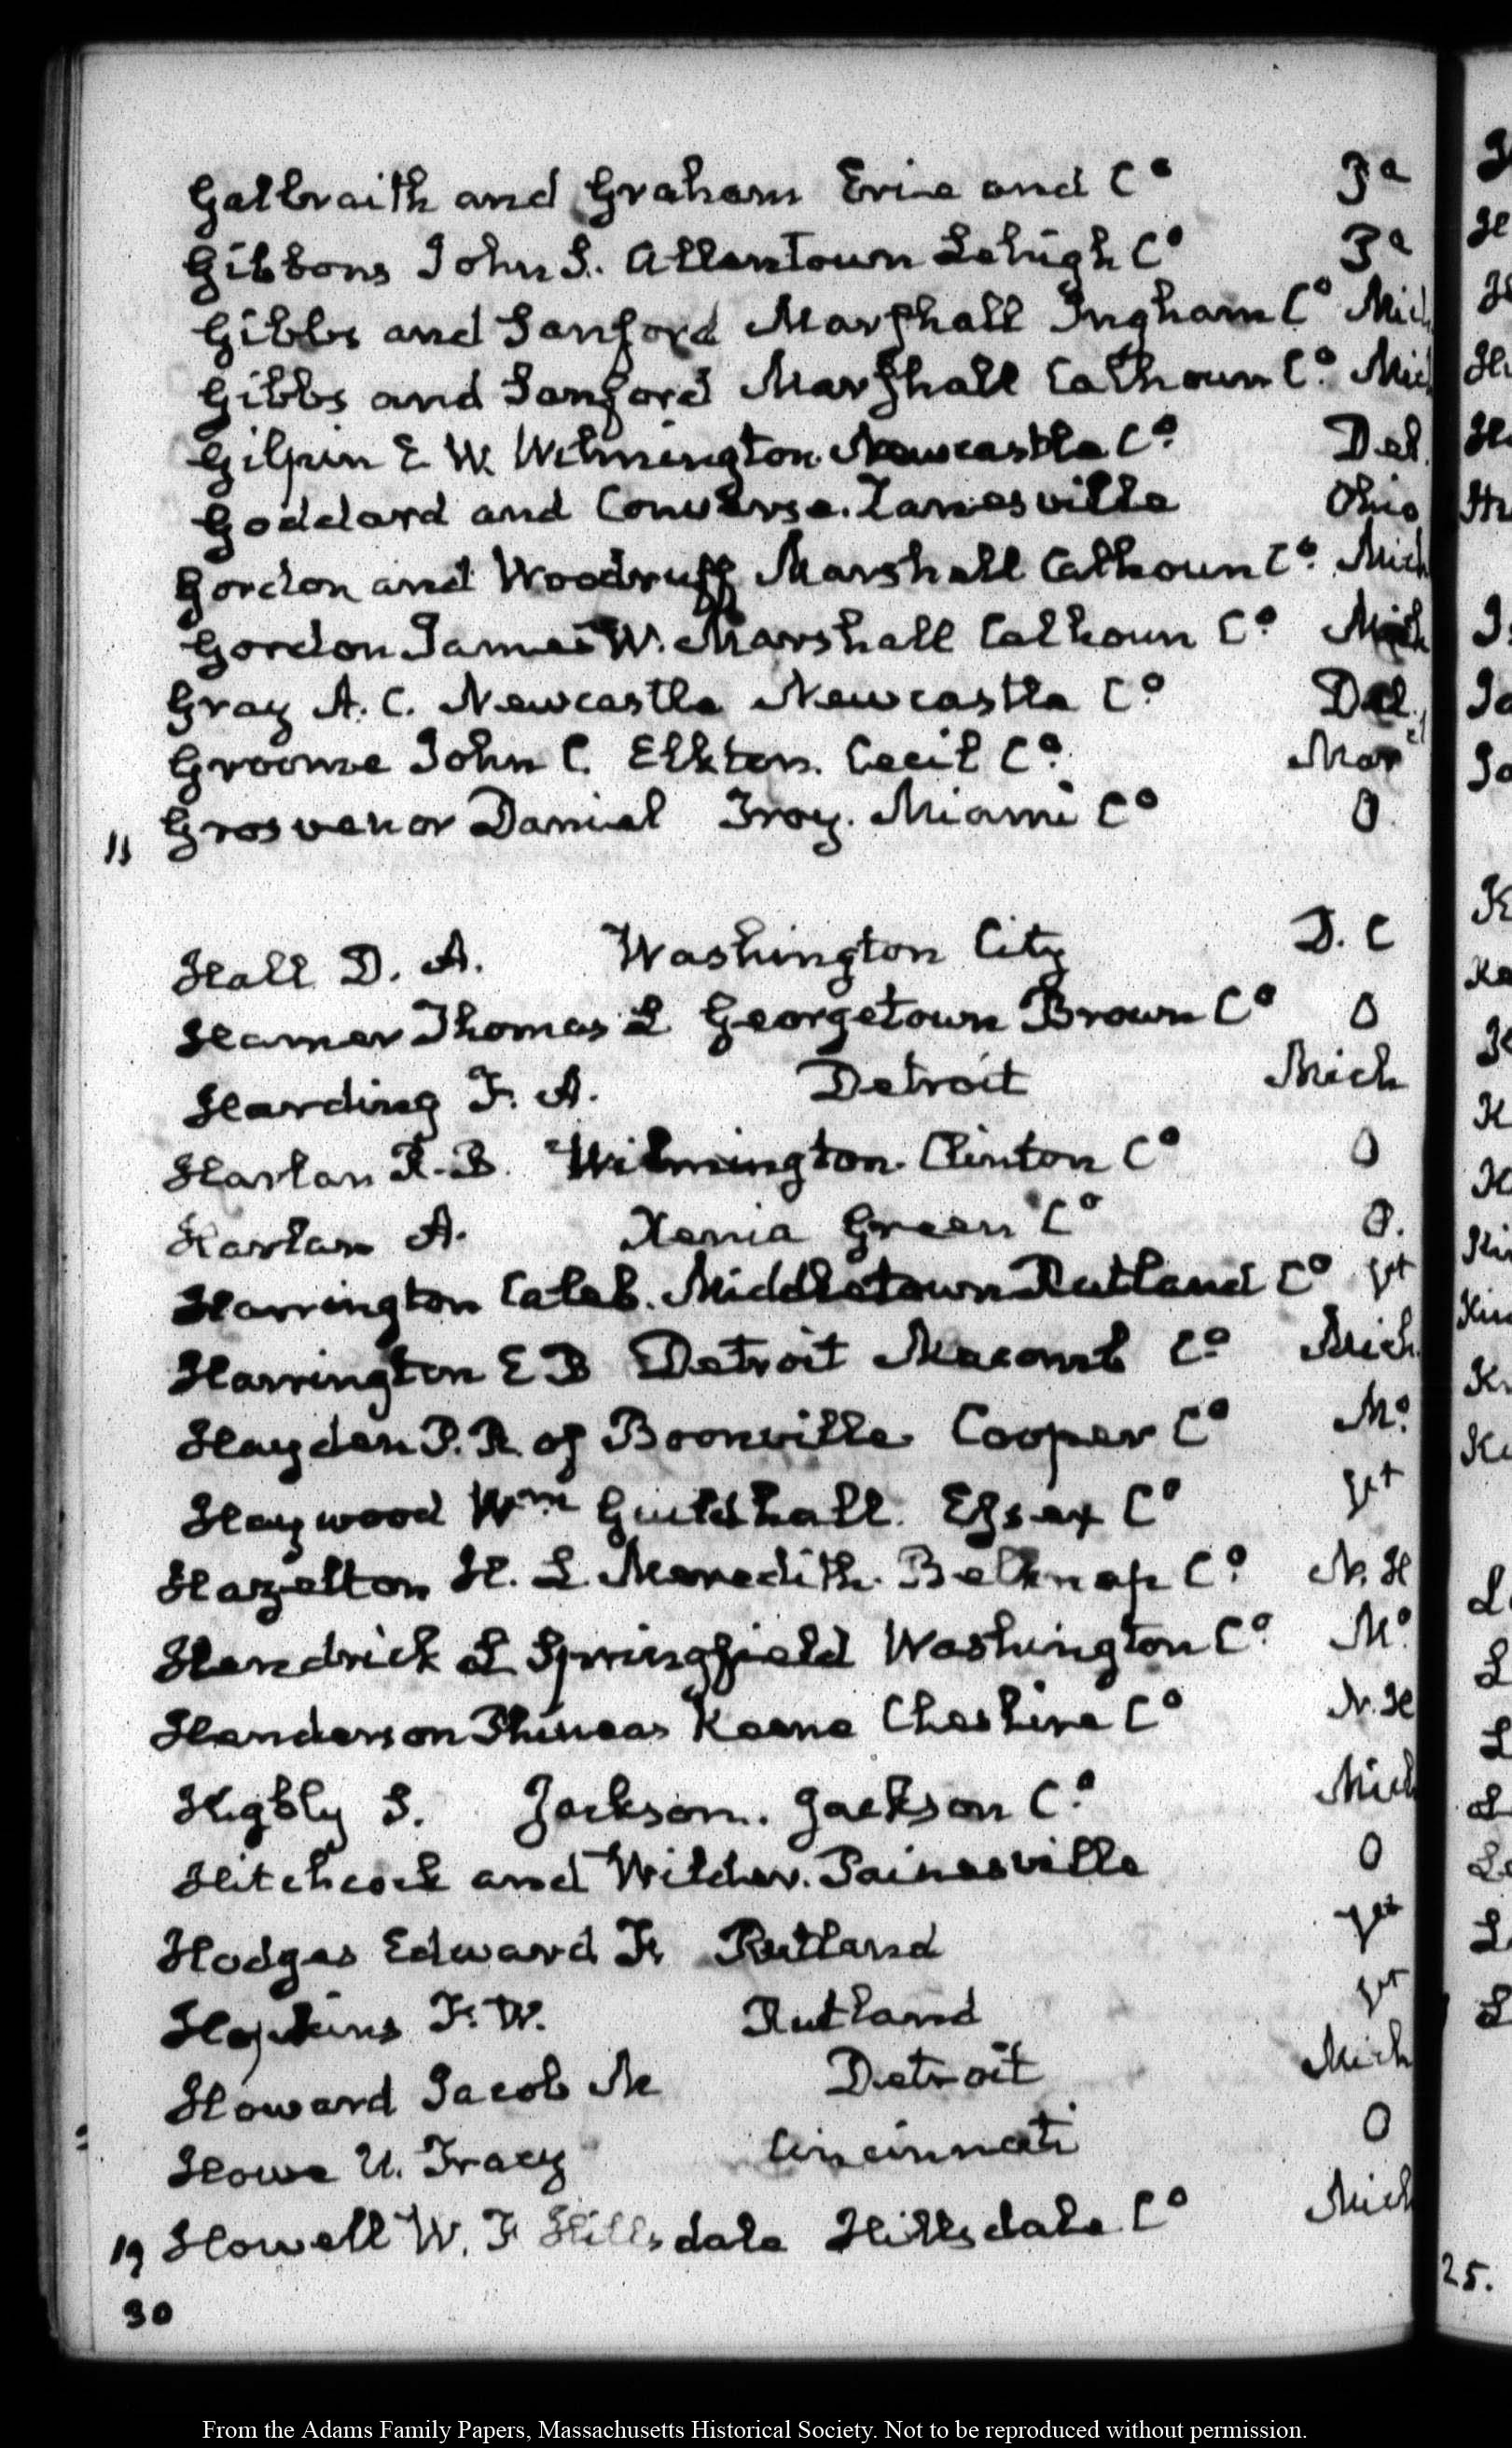 Galbraith and Graham Erie and Cº Pª
Gibbons John S. Allentown Lehigh Cº Pª
Gibbs and Sanford Marshall Ingham Cº Mich
Gibbs and Sanford Marshall Calhoun Cº Mich
Gilpin E W. Wilmington Newcastle Cº Del.
Goddard and Converse. Zanesville Ohio
Gordon and Woodruff Marshall Calhoun Cº. Mich
Gordon James W. Marshall Calhoun Cº Mich
Gray A. C. Newcastle Newcastle Cº Del.
Groome John C. Elkton. Cecil Cº Marᵈ
11 Grosvenor Daniel Troy. Miami Cº O.
Hall D. A. Washington City D. C
Hamer Thomas L Georgetown Brown Cº O
Harding F. A. Detroit Mich
Harlan R. B. Wilmington. Clinton Cº O
Harlan A. Xenia Green Cº O.
Harrington Caleb. Middletown Rutland Cº Vt
Harrington E B Detroit Macomb Cº Mich.
Hayden P. R. of Boonville Cooper Cº Mº
Haywood Wᵐ Guildhall. Essex Cº Vt
Hazelton H. L. Meredith. Belknap Cº N. H
Hendrick L Springfield Washington Cº Mº
Henderson Phineas Keene Cheshire Cº N. H
Higbly S. Jackson. Jackson Cº Mich
Hitchcock and Wilder. Painesville O
Hodges Edward F. Rutland Vt
Hopkins F. W. Rutland Vt
Howard Jacob M Detroit Mich
Howe U. Tracy Cincinnati O
19 Howell W. F Hillsdale Hillsdale Cº Mich
30
25.
From the Adams Family Papers, Massachusetts Historical Society. Not to be reproduced without permission.